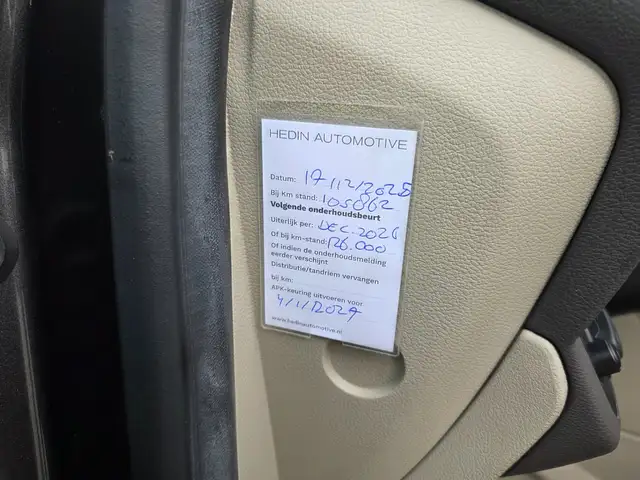 HEDIN AUTOMOTIVE
Datum: 17/12/2025
Bij Km stand: 105862
Volgende onderhoudsbeurt
Uiterlijk per: DEC-2026
Of bij km-stand: 126.000
Of indien de onderhoudsmelding
eerder verschijnt
Distributie/tandriem vervangen
bij km:
APK-keuring uitvoeren voor
4/1/2027
www.hedinautomotive.nl